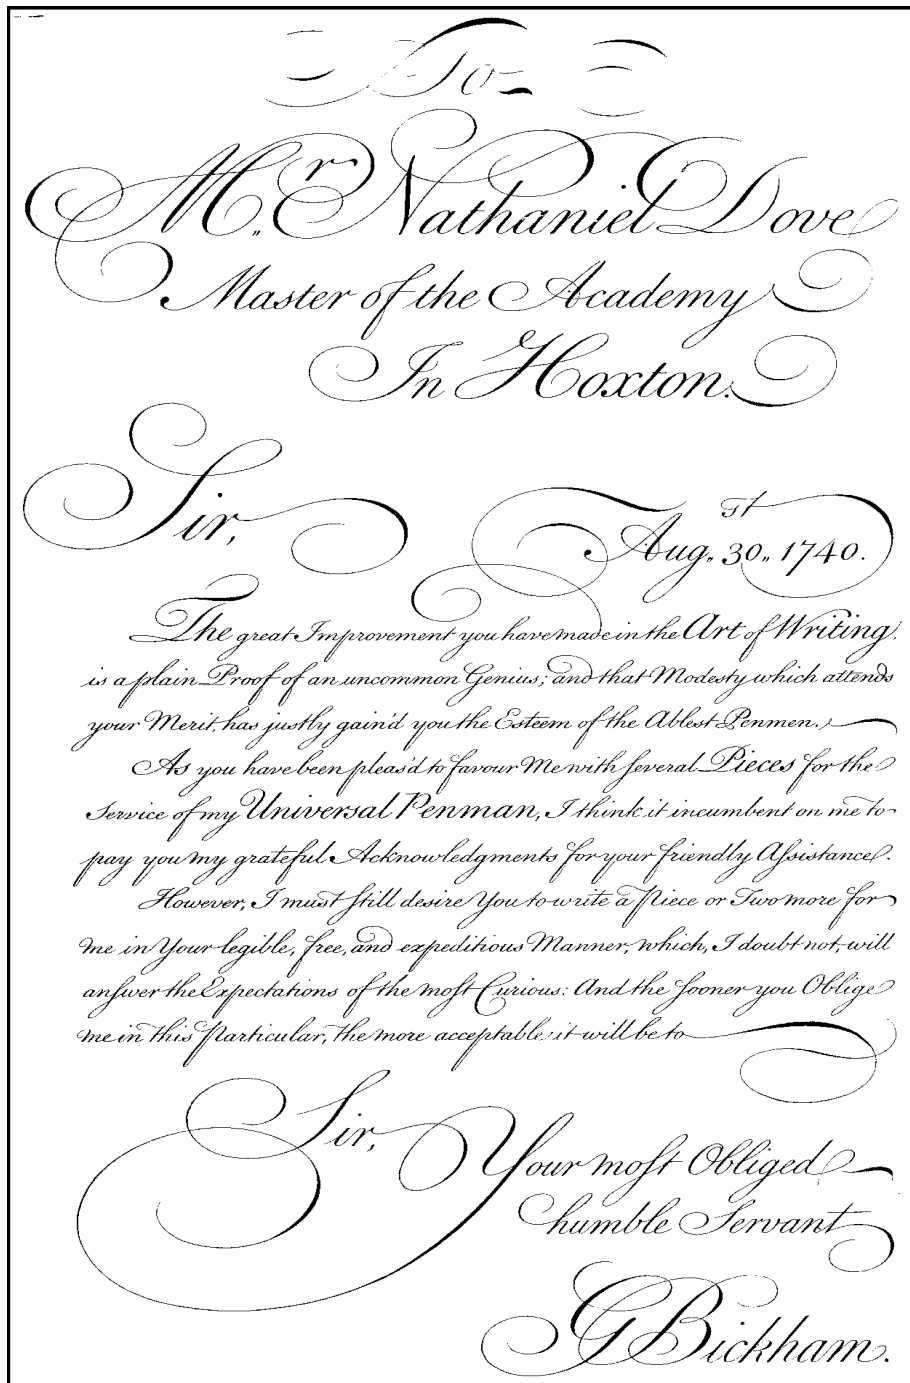 To
Mr. Nathaniel Dove
Master of the Academy
In Hoxton.
Sir,
Augst. 30, 1740.
The great Improvement you have made in the Art of Writing.
is a plain Proof of an uncommon Genius; and that Modesty which attends
your Merit, has justly gain'd you the Esteem of the Ablest Penmen.
As you have been pleas'd to favour Me with ſeveral Pieces for the
Service of my Universal Penman, I think it incumbent on me to
pay you my grateful Acknowledgments for your friendly Aſsistance.
However, I must ſtill desire You to write a Piece or Two more for
me in Your legible, free, and expeditious Manner, which, I doubt not, will
anſwer the Expectations of the moſt Curious: And the ſooner you Oblige
me in this Particular, the more acceptable it will be to
Sir,
Your moſt Obliged
humble Servant
G Bickham.